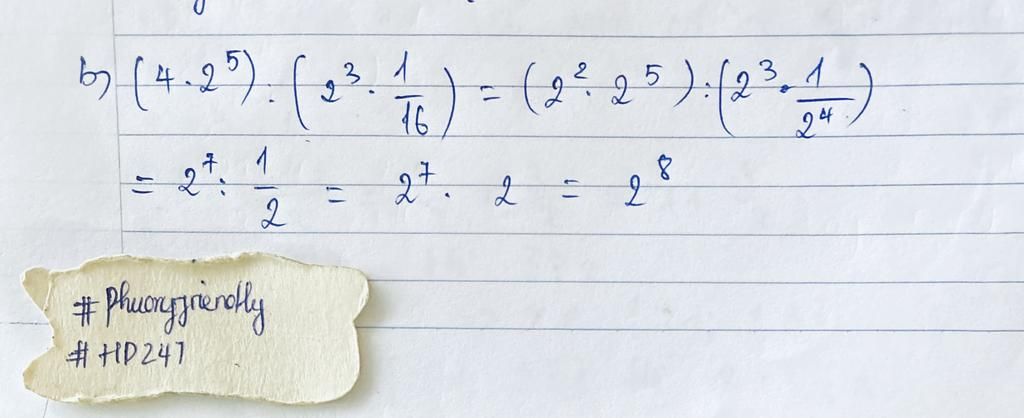 b) (4 . 2⁵) : (2³ . 1/16) = (2² . 2⁵) : (2³ . 1/2⁴)
= 2⁷ : 1/2 = 2⁷ . 2 = 2⁸
# Phuongfriendly
# HD247